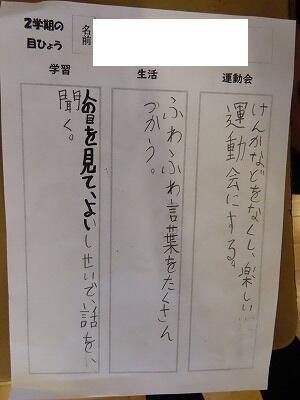 2学期の
目ひょう
名前
運動会
生活
学習
けんかなどをなくし、楽しい
運動会にする。
ふわふわ言葉をたくさん
つかう。
目を見て、よいしせいで、話を、
聞く。